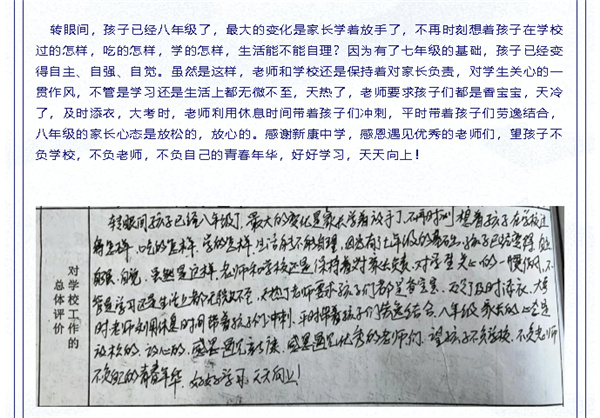 转眼间，孩子已经八年级了，最大的变化是家长学着放手了，不再时刻想着孩子在学校
过的怎样，吃的怎样，学的怎样，生活能不能自理？因为有了七年级的基础，孩子已经变
得自主、自强、自觉。虽然是这样，老师和学校还是保持着对家长负责，对学生关心的一
贯作风，不管是学习还是生活上都无微不至，天热了，老师要求孩子们都是香宝宝，天冷
了，及时添衣，大考时，老师利用休息时间带着孩子们冲刺，平时带着孩子们劳逸结合，
八年级的家长心态是放松的，放心的。感谢新康中学，感恩遇见优秀的老师们，望孩子不
负学校，不负老师，不负自己的青春年华，好好学习，天天向上！
对学校工作的
总体评价
转眼间孩子已经八年级了，最大的变化是家长学着放手了，不再时刻想着孩子在学校过
得怎样，吃的怎样，学的怎样，生活能不能自理，因为有了七年级的基础，孩子已经变得自主
自强、自觉。虽然是这样，老师和学校还是保持着对家长负责，对学生关心的一惯作风，不
管是学习还是生活上都无微不至，天热了老师要求孩子们都是香宝宝，天冷了及时添衣，大考
时老师利用休息时间带着孩子们冲刺，平时带着孩子们劳逸结合，八年级家长的心态是
放松的，放心的，感恩遇见新康，感恩遇见优秀的老师们，望孩子不负学校，不负老师
不负自己的青春年华，好好学习，天天向上！